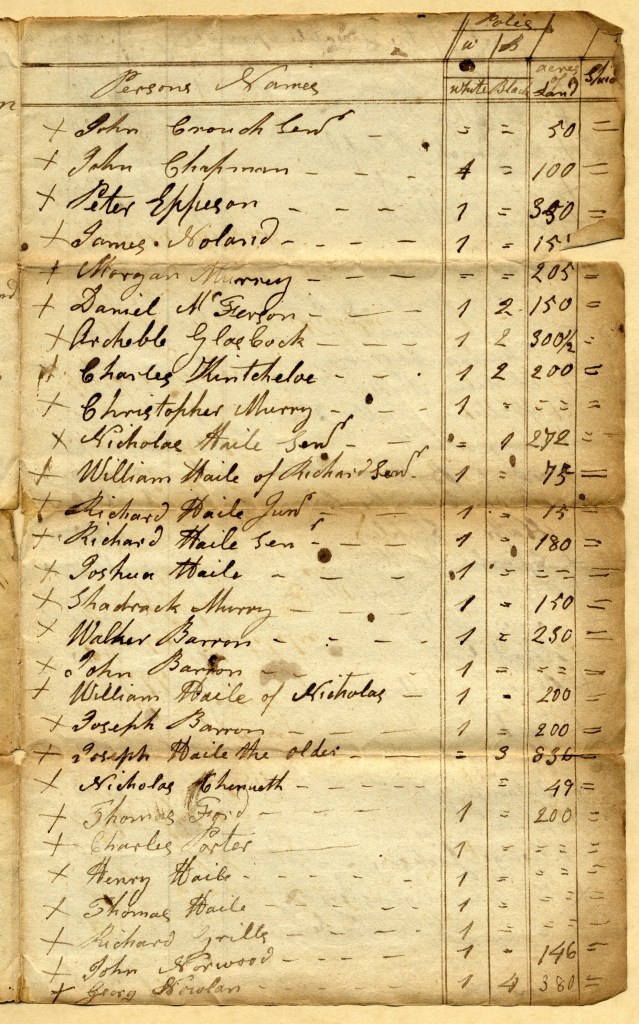 Polls
W B
Persons Names White Black acres of Land Stud
x John Crouch Senr - = = 50 =
x John Chapman - - - - 4 = 100 =
x Peter Eppeson - - - - 1 = 350 =
x James Noland - - - - 1 = 15
x Morgan Murrey - - - = = 205 =
x Daniel McFerson - - - 1 2 150 =
x Archeble GlasCock - - - 1 2 300 1/2 =
x Charles Kintcheloe - - - 1 2 200 =
x Christopher Murry - - - 1 = = = =
x Nicholas Haile Senr - - = 1 272 =
x William Haile of Richard Senr - 1 = 75 =
x Richard Haile Junr - - - 1 = 15 =
x Richard Haile Senr - - - 1 = 180 =
x Joshua Haile - - - - 1 = = = =
x Shadrack Murry - - - - 1 = 150 =
x Walker Barron - - - - 1 = 230 =
x John Barron - - - - 1 = = = =
x William Haile of Nicholas - 1 - 200 =
x Joseph Barron - - - - 1 = 200 =
x Joseph Haile the older - - - = 3 836 =
x Nicholas Chenueth - - - - = 49 =
x Thomas Ford - - - - 1 = 200 =
x Charles Porter 1 = = = =
x Henry Haile - - - - 1 = = = =
x Thomas Haile - - - - 1 = = = =
x Richard Grills - - - - 1 = = = =
x John Norwood - - - - 1 = 146 =
x Georg Nowlan - - - - 1 4 380 =